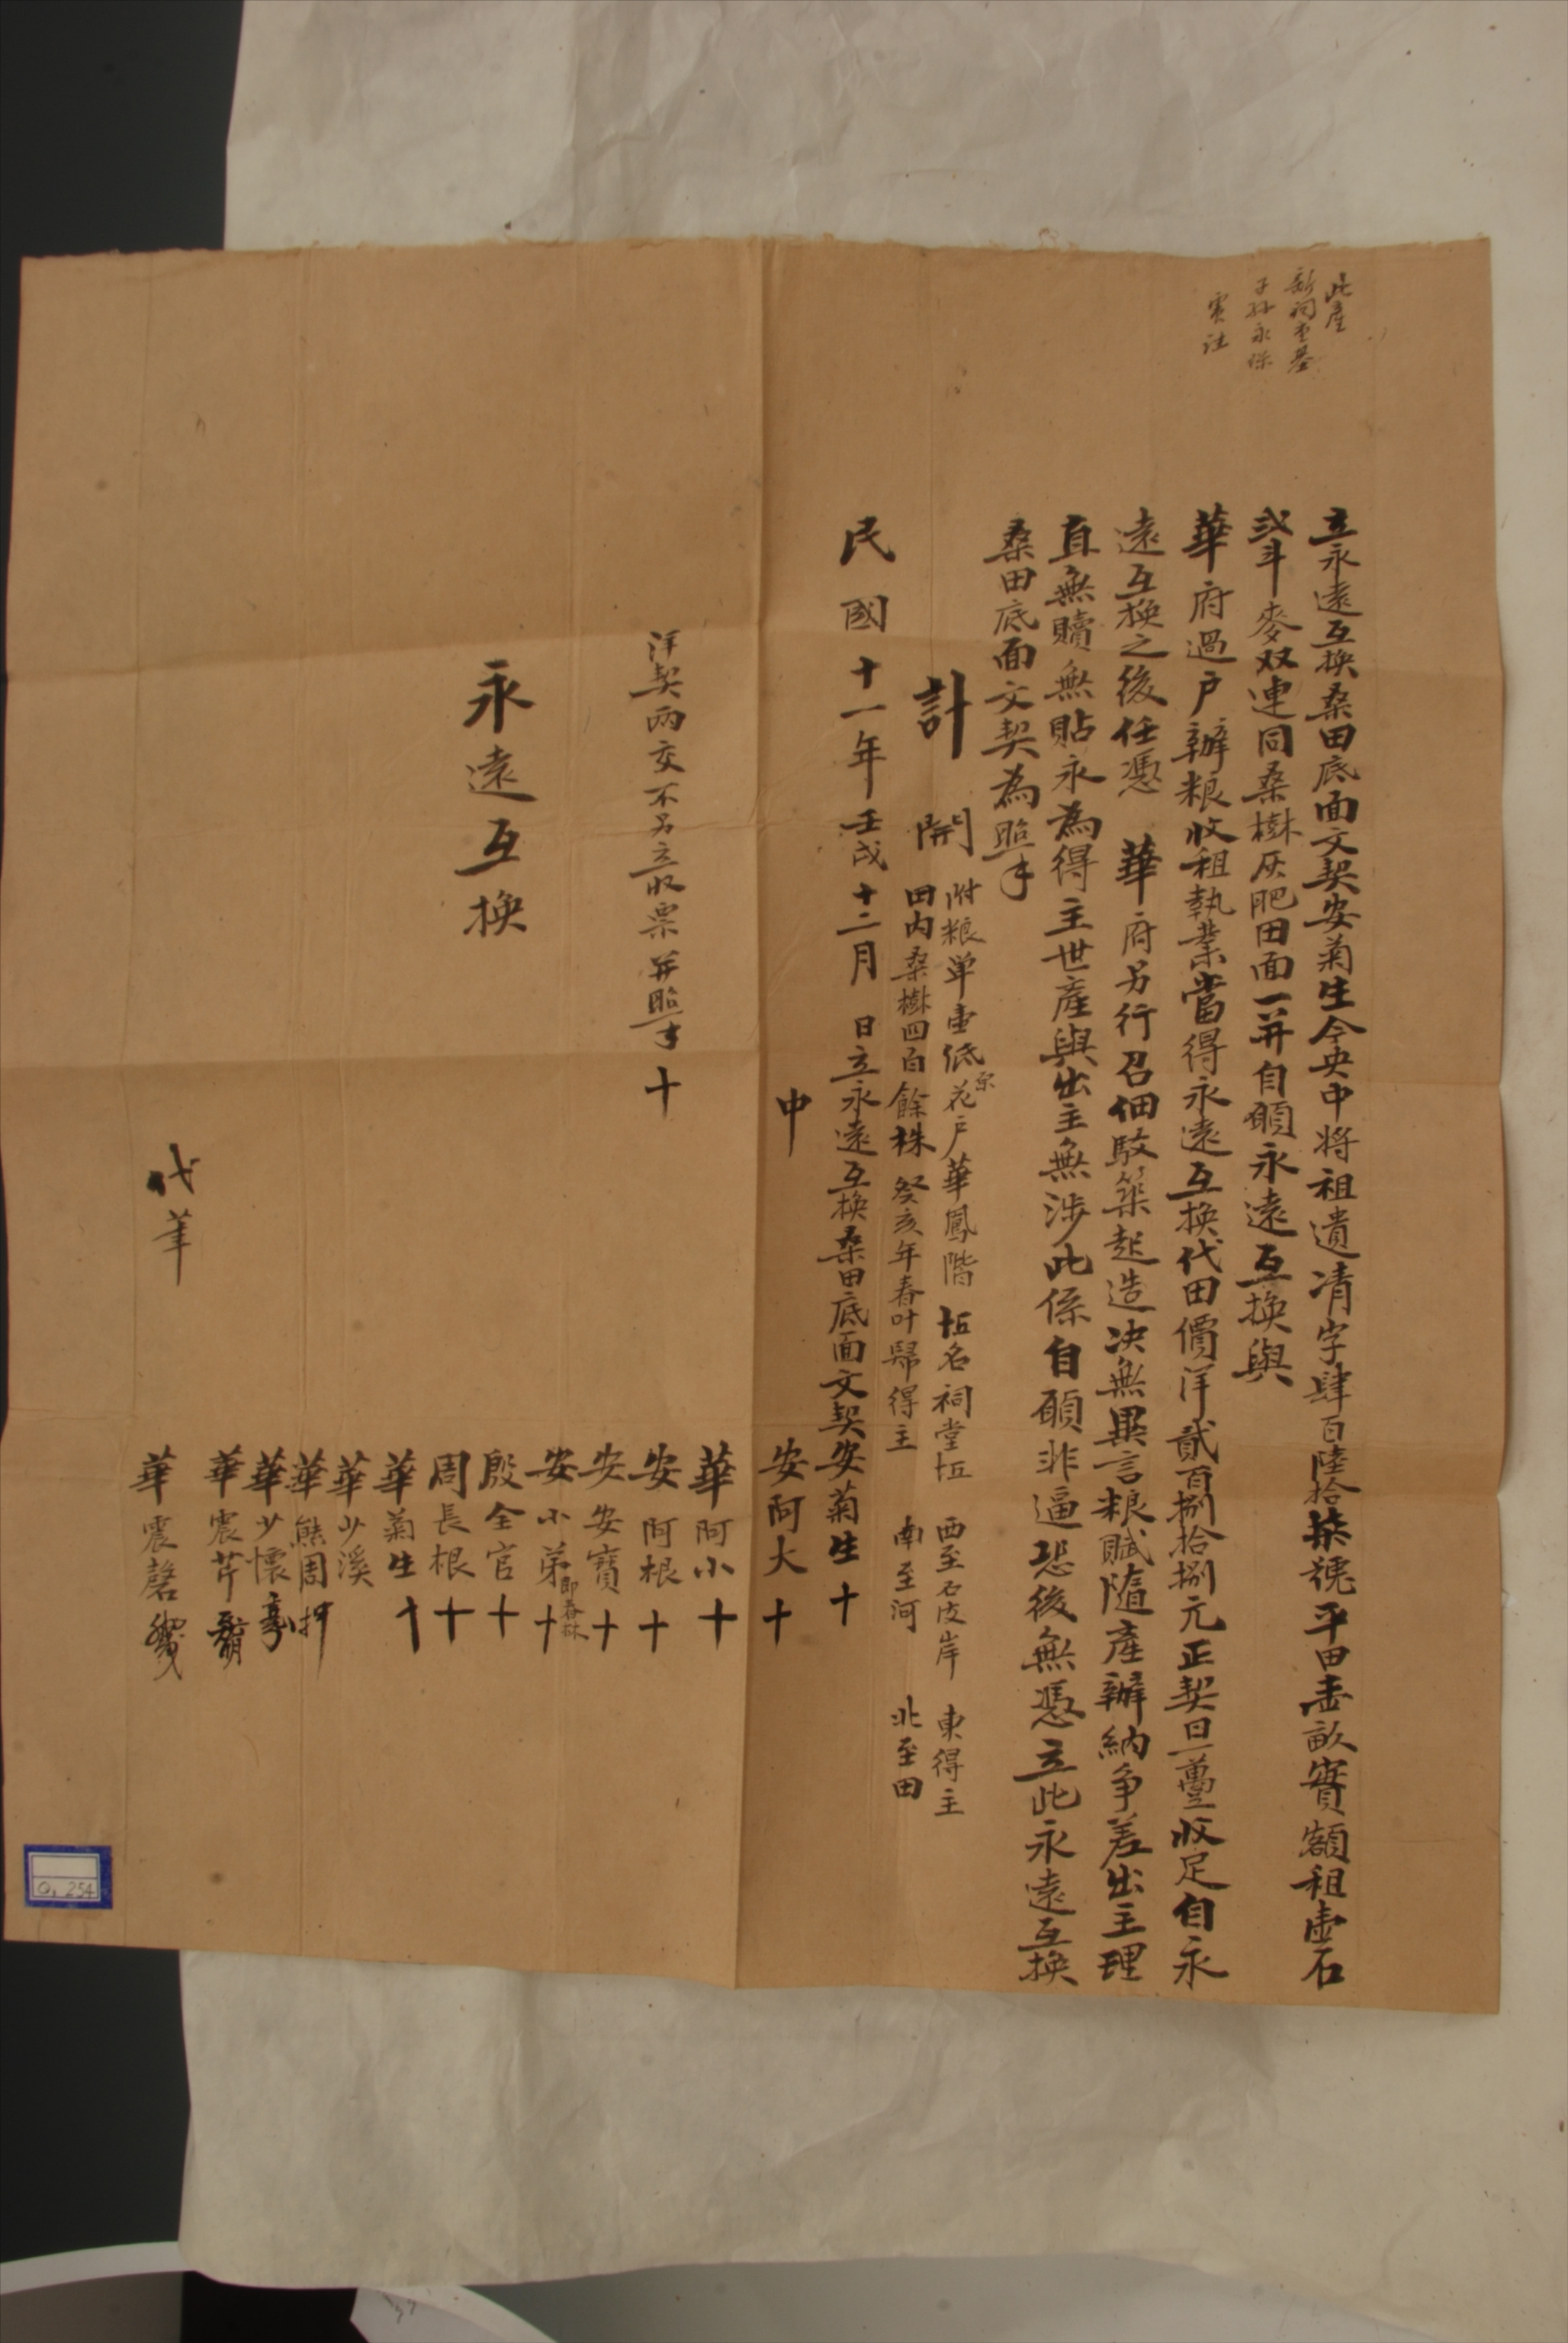 此產
新祠堂基
子孫永保
實註
立永遠互換桑田底面文契安菊生今央中將祖遺清字肆百陸拾柒號平田壹畝實額租壹石
弍斗麥双連同桑樹灰肥田面一并自願永遠互換與
華府過戶辦粮收租執業當得永遠互換代田價洋貳百捌拾捌元正契日一壹收足自永
遠互換之後任憑 華府另行召佃駁築起造決無異言粮賦隨產辦納爭差出主理
直無贖無貼永為得主世產與出主無涉此係自願非逼恐後無憑立此永遠互換
桑田底面文契為照
計開 附粮單壹紙 原花戶華鳳階 十五名祠堂十五 西至石皮岸 東得主
田內桑樹四百餘株 癸亥年春叶歸得主 南至河 北至田
民國十一年壬戌十二月 日立永遠互換桑田底面文契安菊生 十
中 安阿大 十
華阿小 十
洋契兩交不另立收票并照 十 安阿根 十
安安寶 十
安小弟 即春林 十
殷全官 十
永遠互換 周長根 十
華菊生 十
華少溪
華熊周 押
華少懷
華震芹
代筆 華震磬
Q. 254